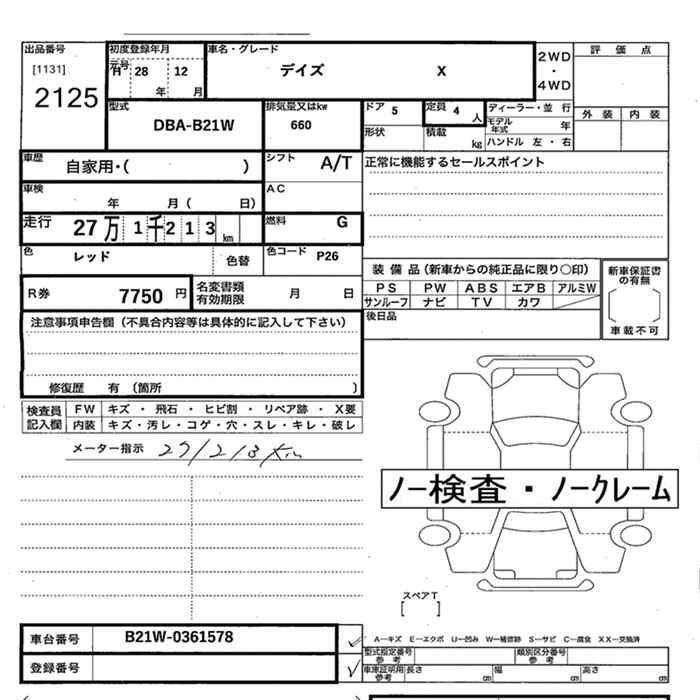 出品番号
[1131]
2125
初度登録年月
元号
H 28 12
年 月
車名・グレード
デイズ X
2WD
・
4WD
評価点
外装 内装
型式
DBA-B21W
排気量又はkw
660
ドア 5
形状
定員 4 人
積載 kg
ディーラー・並行
モデル年式 年
ハンドル 左・右
車歴
自家用・( )
シフト
A/T
正常に機能するセールスポイント
車検
年 月( 日)
AC
走行 27万 1千213km
燃料 G
色 レッド 色替
色コード P26
R券 7750 円
名変書類
有効期限 月 日
装備品(新車からの純正品に限り○印)
PS PW ABS エアB アルミW
サンルーフ ナビ TV カワ
後日品
新車保証書
の有無
車載不可
注意事項申告欄(不具合内容等は具体的に記入して下さい)
修復歴 有 (箇所 )
検査員
記入欄
FW キズ・飛石・ヒビ割・リペア跡・X要
内装 キズ・汚レ・コゲ・穴・スレ・キレ・破レ
メーター指示 271213Km
ノー検査・ノークレーム
スペアT
[ ]
A―キズ E―エクボ U―凹み W―補修跡 S―サビ C―腐食 XX―交換済
車台番号 B21W-0361578
登録番号
型式指定番号
参考
類別区分番号
参考
車庫証明用
参考
長さ cm 幅 cm 高さ cm